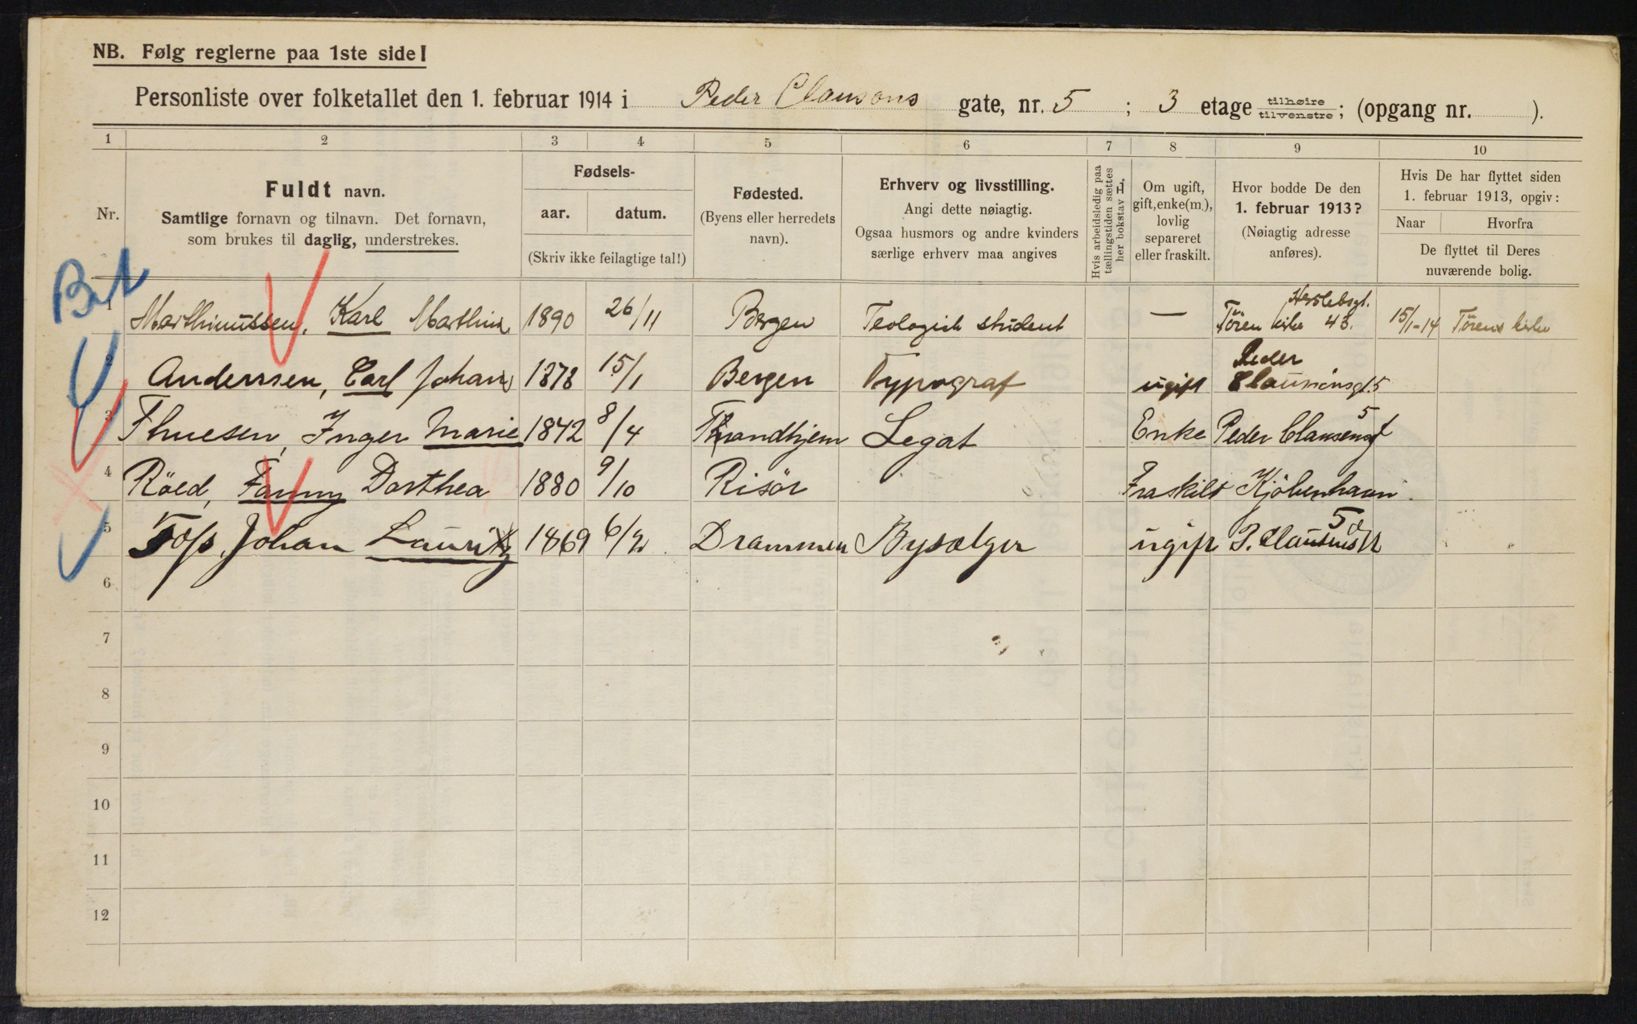 NB. Følg reglerne paa 1ste side!
Personliste over folketallet den 1. februar 1914 i Peder Clausøns gate, nr. 5 ; 3 etage tilhøire tilvenstre; (opgang nr. ).
1 2 3 4 5 6 7 8 9 10
Nr.
Fuldt navn.
Samtlige fornavn og tilnavn. Det fornavn,
som brukes til daglig, understrekes.
Fødsels-
aar. datum.
(Skriv ikke feilagtige tal!)
Fødested.
(Byens eller herredets
navn).
Erhverv og livsstilling.
Angi dette nøiagtig.
Ogsaa husmors og andre kvinders
særlige erhverv maa angives
Hvis arbeidsledig paa
tællingstiden sættes
her bokstav L.
Om ugift,
gift, enke(m.),
lovlig
separeret
eller fraskilt.
Hvor bodde De den
1. februar 1913?
(Nøiagtig adresse
anføres).
Hvis De har flyttet siden
1. februar 1913, opgiv:
Naar Hvorfra
De flyttet til Deres
nuværende bolig.
1 Marthinussen, Karl Marthin 1890 26/11 Bergen Teologisk student — 43. 15/1-14
2 Anderssen, Carl Johan 1878 15/1 Bergen Typograf ugift Peder Claussønsgt. 5
3 Thuesen, Inger Marie 1842 8/4 Trondhjem Legat Enke Peder Clausensgt 5
4 Röed, Fanny Dorthea 1880 9/10 Risör Fraskilt Kjöbenhavn.
5 Foss, Johan Lauritz 1869 6/2 Drammen Bysælger ugift P. Clausensgt 5
6
7
8
9
10
11
12